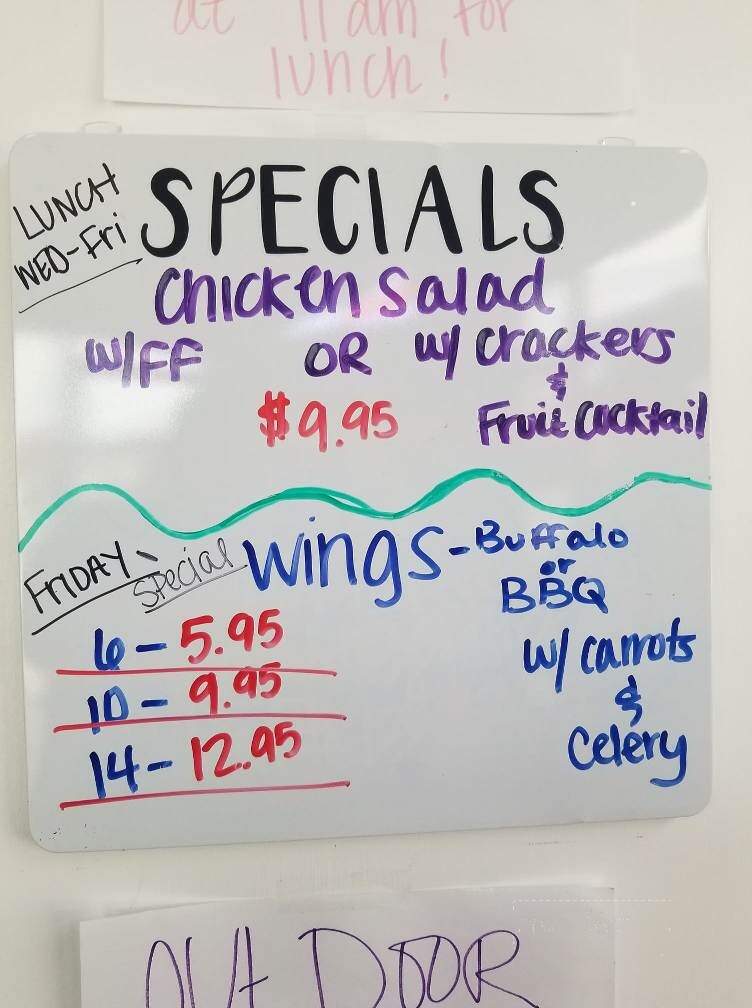 at 11am for
lunch!
LUNCH
WED-Fri
SPECIALS
Chicken Salad
w/FF OR w/ crackers
&
Fruit Cocktail
$9.95
FRIDAY
Special
Wings - Buffalo
or
BBQ
6 - 5.95
10 - 9.95
14 - 12.95
w/ carrots
&
Celery
OUT DOOR